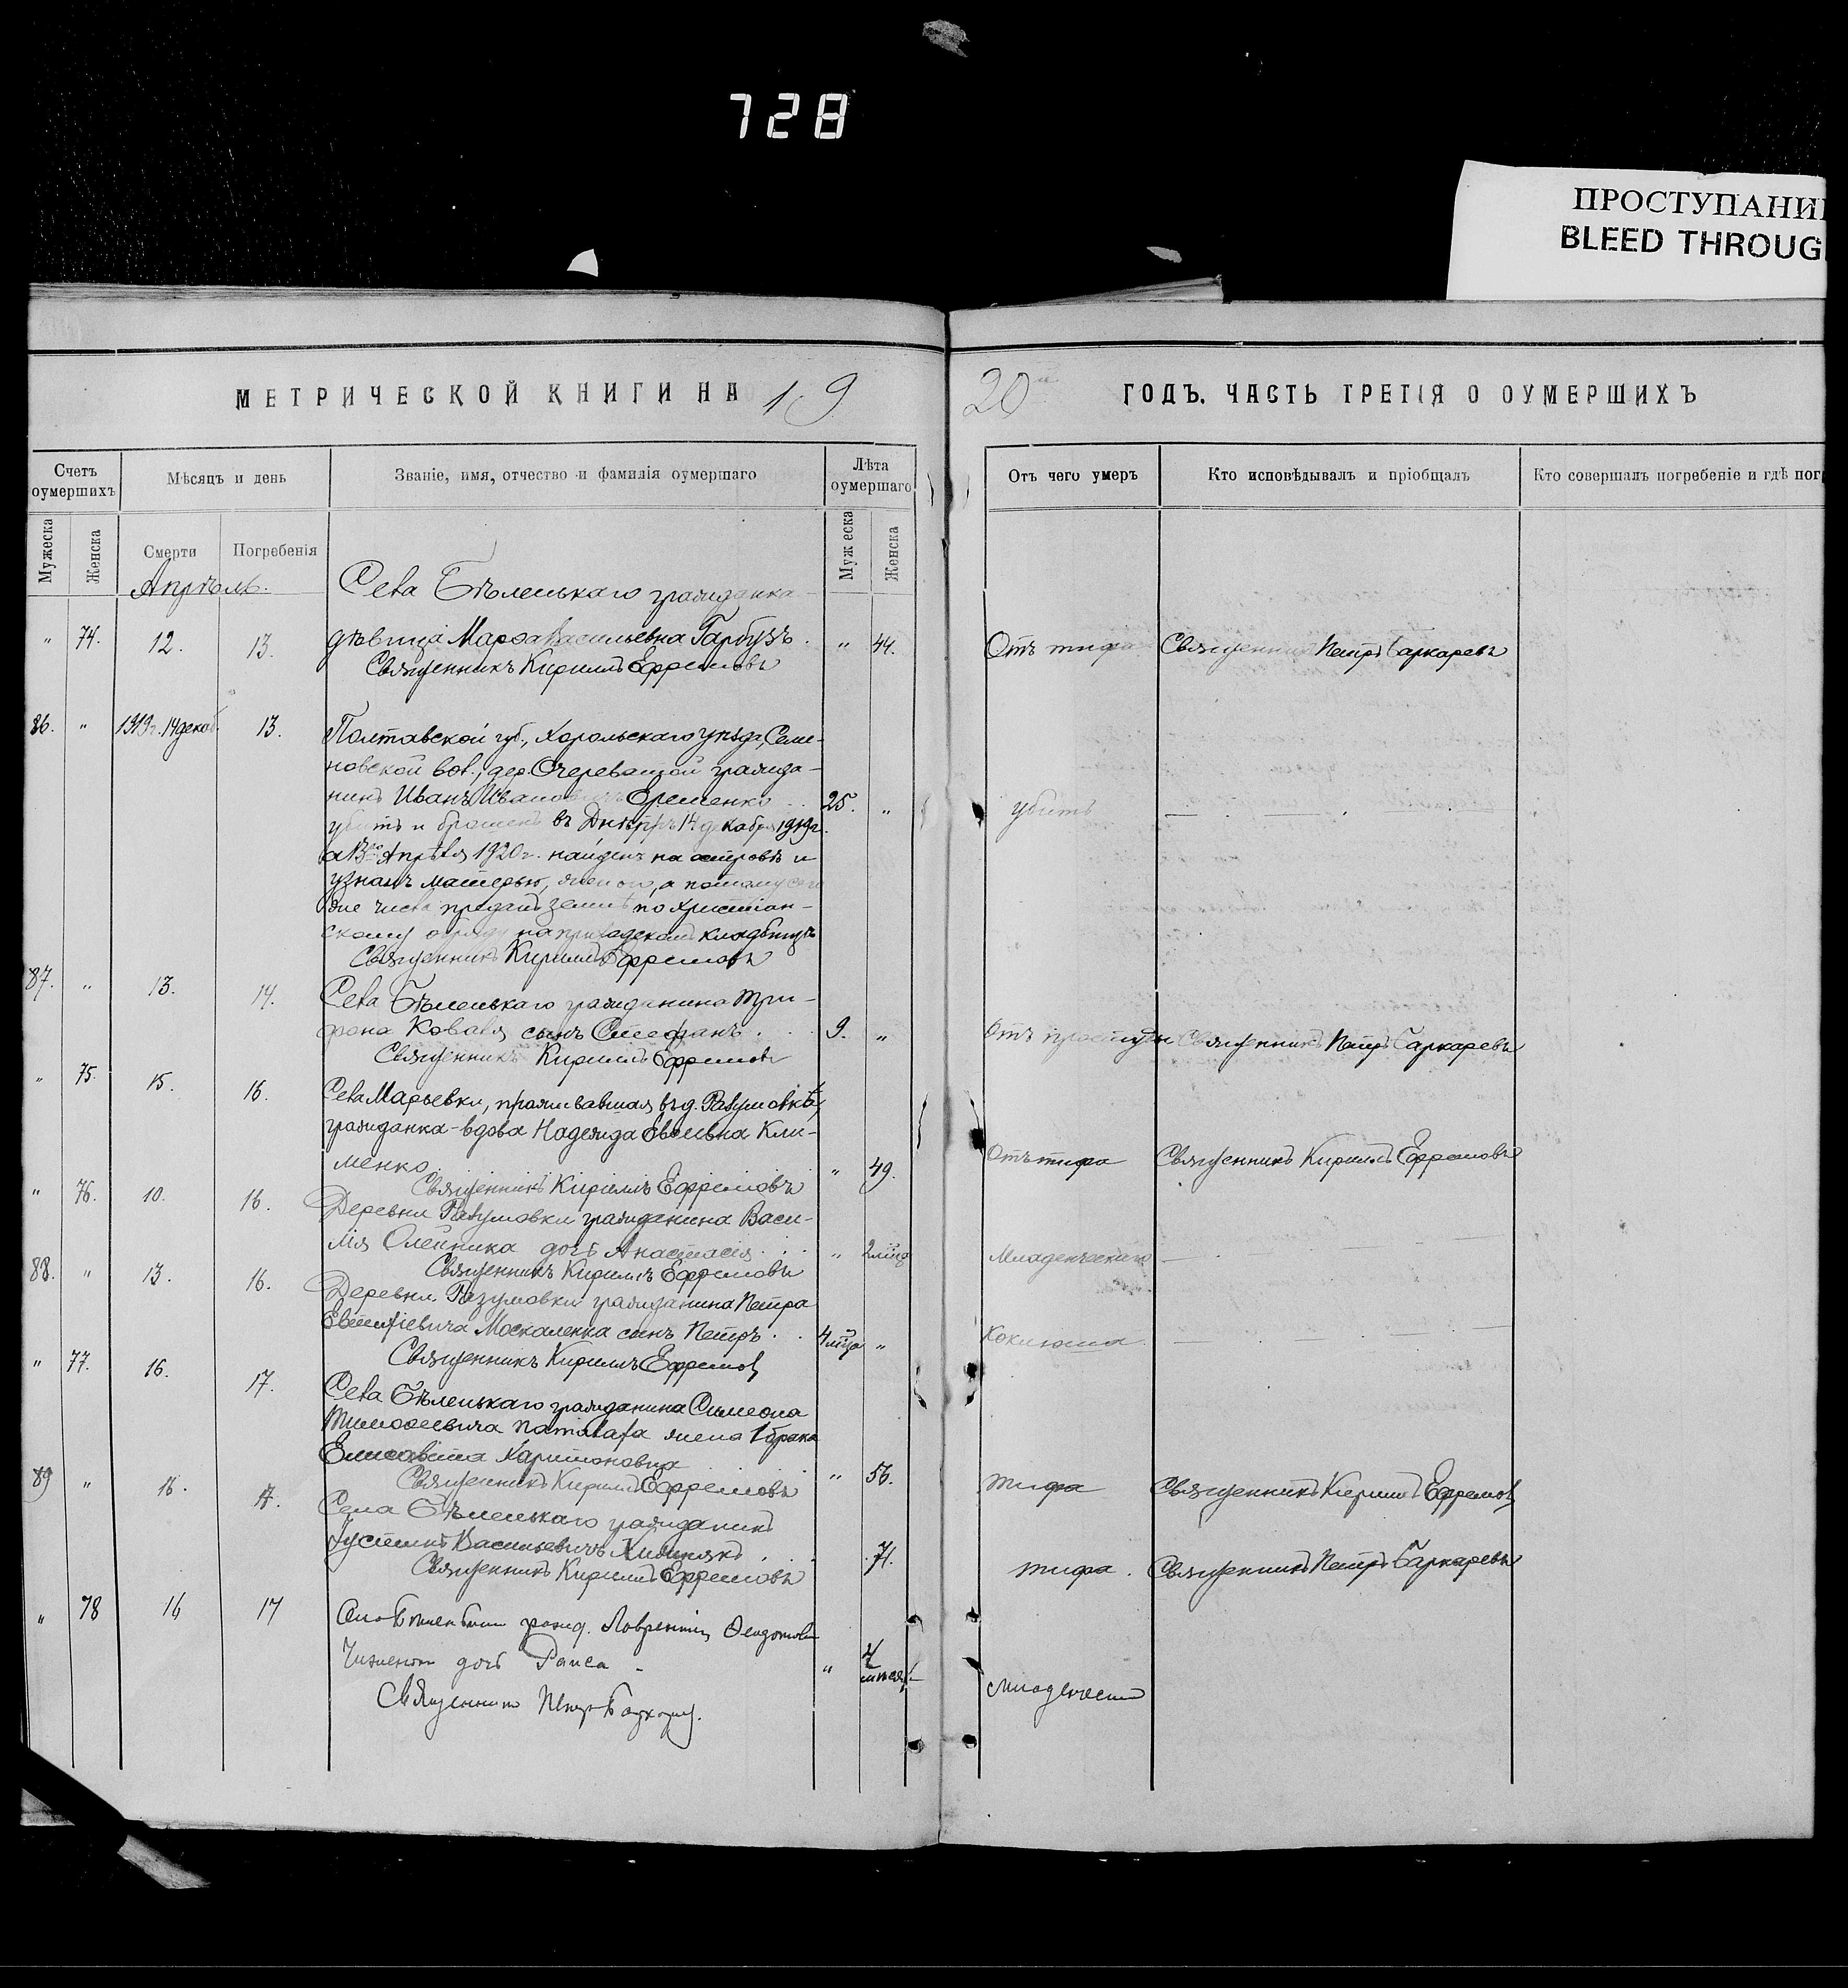 728
ПРОСТУПАНИ
BLEED THROUG
МЕТРИЧЕСКОЙ КНИГИ НА 19
20 ГОДЪ. ЧАСТЬ ТРЕТІЯ О ОУМЕРШИХЪ
Счетъ оумершихъ
Мѣсяцъ и день
Званіе, имя, отчество и фамилія оумершаго
Лѣта оумершаго
Отъ чего умеръ
Кто исповѣдывалъ и пріобщалъ
Кто совершалъ погребеніе и гдѣ пог
Мужеска
Женска
Смерти
Погребенія
Муж еска
Женска
Апрѣль.
Села Бѣленькаго гражданка
" 74. 12. 13. дѣвица Марѳа Васильевна Гарбузъ . " 44. Отъ тифа Священникъ Петръ
Священникъ Кириллъ Ефремовъ
86. " 1919г. 14 декаб. 13. Полтавской губ., Хорольскаго уѣзда, Семе-
новской вол., дер. Очереватой гражда-
нинъ Иванъ Ивановичъ Еременко . . 25. " убитъ
убитъ и брошенъ въ Днѣпръ 14 декабря 1919г.
а 13го Апрѣля 1920г. найденъ на островѣ и
узнанъ матерью, женою, а потому
числа преданъ землѣ по христіан-
скому обряду на приходскомъ кладбищѣ
Священникъ Кириллъ Ефремовъ
87. " 13. 14. Села Бѣленькаго гражданина Три-
фона Коваля сынъ Стефанъ . . . 9. " Отъ простуды Священникъ Петръ
Священникъ Кириллъ Ефремовъ
" 75. 15. 16. Села Марьевки, проживавшая въ д. Разумовкѣ,
гражданка-вдова Надежда Кли-
менко . " 49. Отъ тифа Священникъ Кириллъ Ефремовъ
Священникъ Кириллъ Ефремовъ
" 76. 10. 16. Деревни Разумовки гражданина Васи-
лія Олейника дочь Анастасія . . . " 2 Младенческаго
Священникъ Кириллъ Ефремовъ
88. " 13. 16. Деревни Разумовки гражданина Петра
Москаленка сынъ Петръ . . 4 " Коклюша
Священникъ Кириллъ Ефремовъ
" 77. 16. 17. Села Бѣленькаго гражданина Симеона
Тимоѳеевича жена 1 брака
Елисавета Харитоновна
" 56. тифа Священникъ Кириллъ Ефремовъ
Священникъ Кириллъ Ефремовъ
89 " 16. 17. Села Бѣленькаго гражданинъ
Іустинъ Васильевичъ . . . 71. тифа . Священникъ Петръ
Священникъ Кириллъ Ефремовъ
" 78 16 17 гражд. Лаврентія
дочь Раиса - " младенческ
Священникъ Петръ